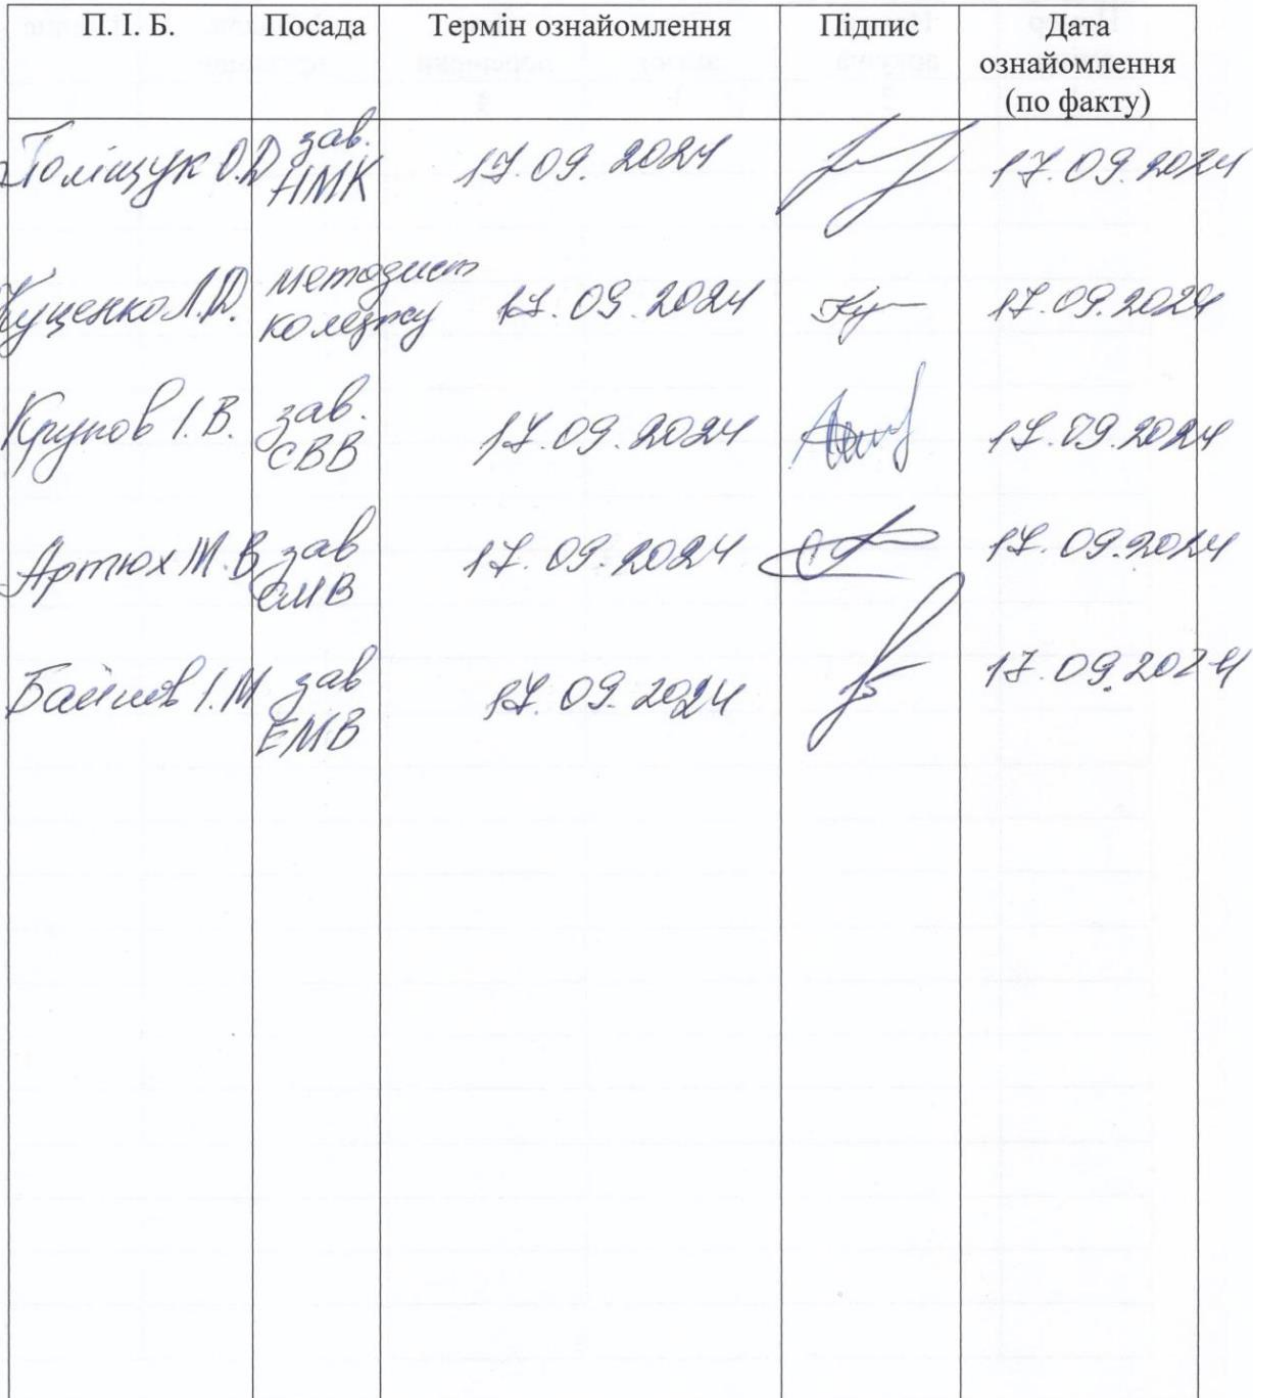 П. І. Б. Посада Термін ознайомлення Підпис Дата
ознайомлення
(по факту)
Поліщук О.Д зав. НМК 17.09.2024 17.09.2024
Куценко Л.Д. методист коледжу 17.09.2024 17.09.2024
Крупов І.В. зав. СВВ 17.09.2024 17.09.2024
Артюх М.В зав СМВ 17.09.2024 17.09.2024
І.М зав ЕМВ 17.09.2024 17.09.2024